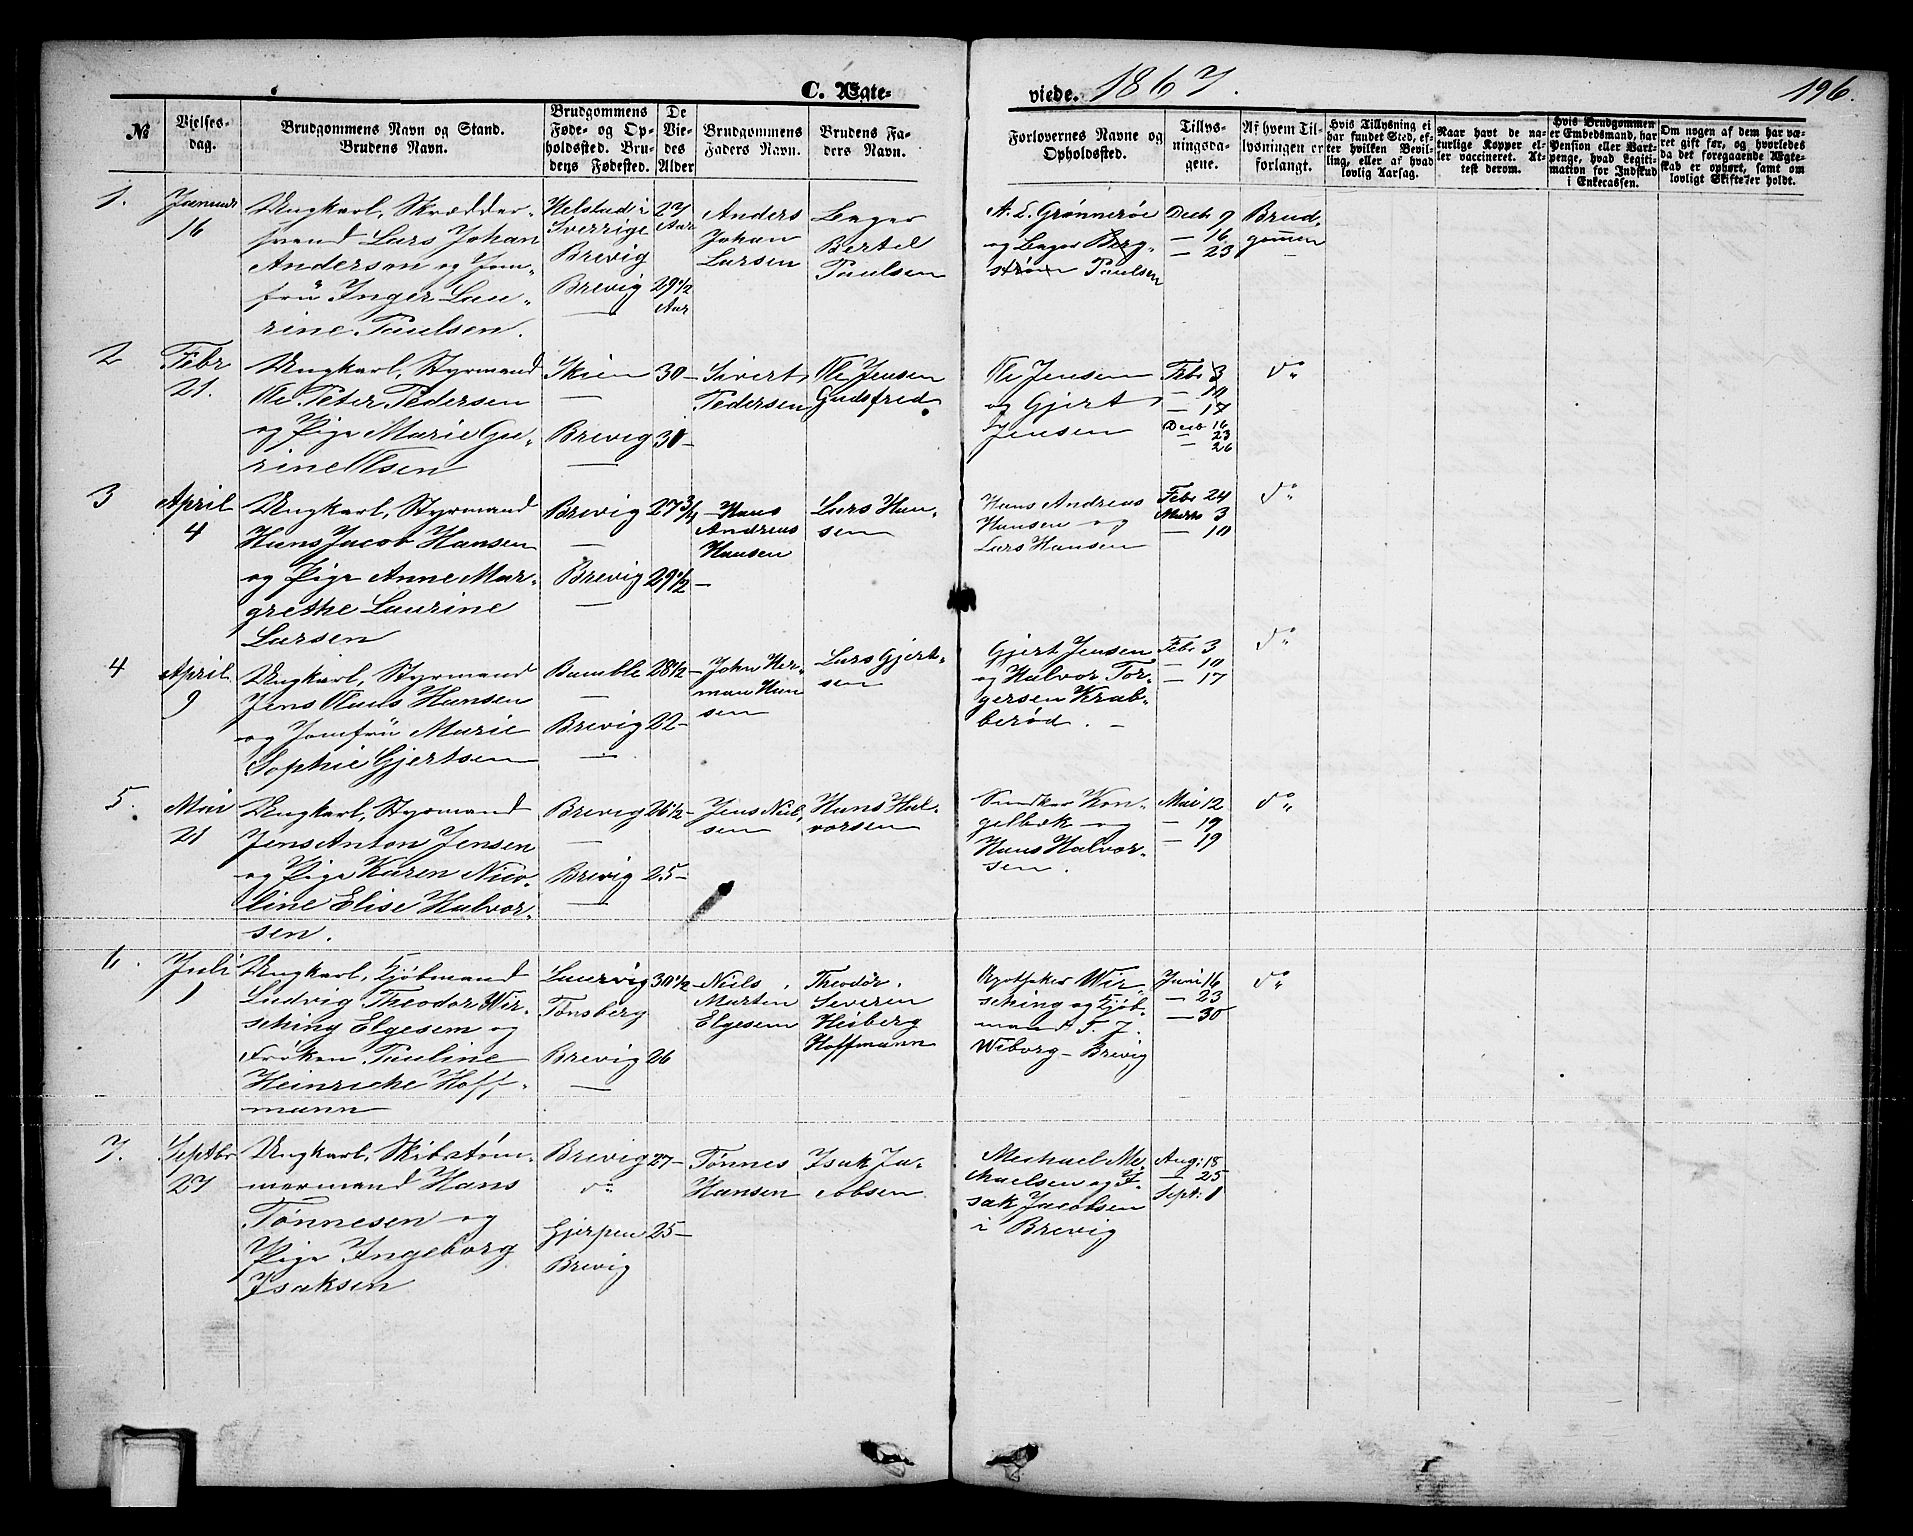 C. Ægte-
viede. 1867.
196.
№
Vielses-
dag.
Brudgommens Navn og Stand.
Brudens Navn.
Brudgommens
Føde- og Op-
holdssted. Bru-
dens Fødested.
De
Vie-
des
Alder
Brudgommens
Faders Navn.
Brudens Fa-
ders Navn.
Forlovernes Navne og
Opholdssted.
Tillys-
ningsda-
gene.
Af hvem Til-
lysningen er
forlangt.
Hvis Tillysning ei
har fundet Sted, ef-
ter hvilken Bevil-
ling, eller af hvad
lovlig Aarsag.
Naar havt de na-
turlige Kopper el-
ler vaccineret. At-
test derom.
Hvis Brudgommen
er Embedsmand, har
Pension eller Vart-
penge, hvad Legiti-
mation for Indskud
i Enkecassen.
Om nogen af dem har væ-
ret gift før, og hvorledes
da det foregaaende Ægte-
skab er ophørt, samt om
lovligt Skifte er holdt.
1.
Januar
16
Ungkarl, Skrædder-
svend Lars Johan
Anderson og Jom-
fru Inger Lau-
rine Paulsen.
Helstad i
Sverrige
Brevig
Brevig
—
27
Aar
29 1/2
Aar
Anders
Johan
Larsen
Lager
Bertel
Paulsen
A. L. Grønnerøe
og Lager Berg-
strøm Paulsen
Decb 9
— 16
— 23
Brud-
gommen
2
Febr
21.
Ungkarl, Styrmand
Ole Peter Pedersen
og Pige Marie Gu-
rine Olsen
Skien
—
Brevig
—
30 —
30 —
Sivert
Pedersen
Ole Jensen
Gudsfred.
Ole Jensen
og Gjert
Jensen
Febr 3
— 10
— 17
Decb 16
— 23
— 26
do
3
April
4
Ungkarl, Styrmand
Hans Jacob Hansen
og Pige Anne Mar-
grethe Laurine
Larsen
Brevig
—
Brevig
—
27 3/4
29 1/2 —
Hans
Andreas
Hansen
Lars Han-
sen
Hans Andreas
Hansen og
Lars Hansen
Febr 24
Marts 3
— 10
do
4
April
9
Ungkarl, Styrmand
Jens Olaus Hansen
og Jomfru Marie
Sophie Gjertsen
Bamble
—
Brevig
—
28 1/2 —
22 —
John Her-
man Han
sen
Lars Gjert-
sen
Gjert Jensen
og Halvor Tor-
gersen Krab-
berød. —
Febr 3
— 10
— 17
do
5.
Mai
21
Ungkarl, Styrmand
Jens Anton Jensen
og Pige Karen Nico-
line Elise Halvor-
sen.
Brevig
—
Brevig
—
26 1/2 —
25 —
Jens Niel-
sen
Hans Hal-
vorsen
Kon-
gelbæk og
Hans Halvor-
sen.
Mai 12
— 19
— 19
do
6.
Juli
1
Ungkarl, Kjøbmand
Ludvig Theodor Wir-
sching Elgesem og
Frøken Pauline
Heinricke Hoff-
mann
Laurvig
Tønsberg
Brevig
—
30 1/2 —
26
Niels
Morten
Elgesem
Theodor
Severin
Heiberg
Hoffmann
Apotheker Wir-
sching og Kjøb-
mand T. J.
Wiborg — Brevig
Juni 16
— 23
— 30
do
7.
Septbr
27
Ungkarl, Skibstøm-
mermand Hans
Tønnesen og
Pige Ingeborg
Isaksen
Brevig
do
Gjerpen
Brevig
27 —
25 —
Tønnes
Hansen
Isak Ja-
cobsen
Michael Mi-
chaelsen og I-
sak Jacobsen
i Brevig
Aug: 18
— 25
Sept: 1